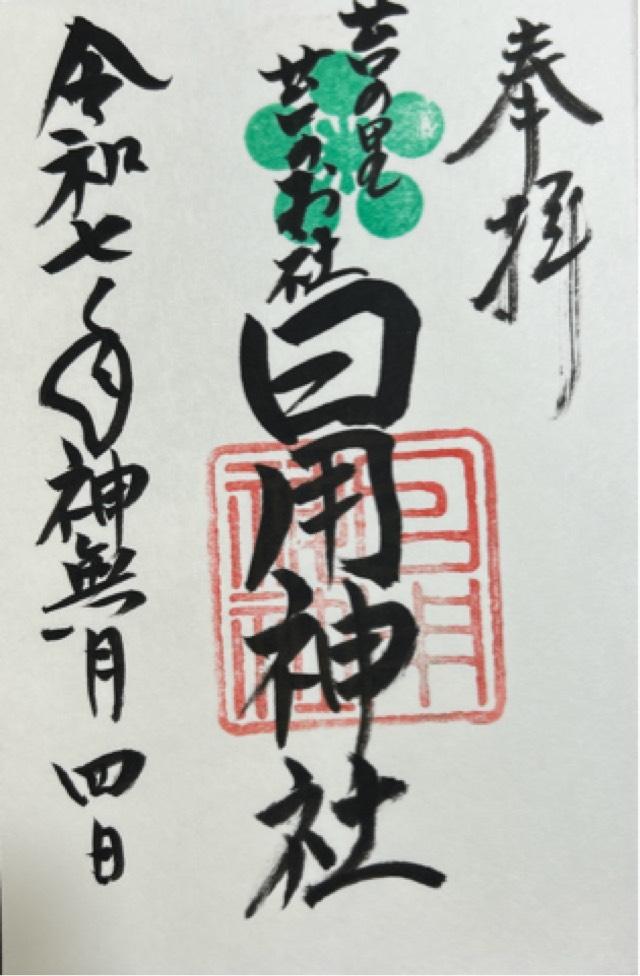 奉拝
苔の里
苔のお社
日用神社
令和七年神無月四日
日用
神社